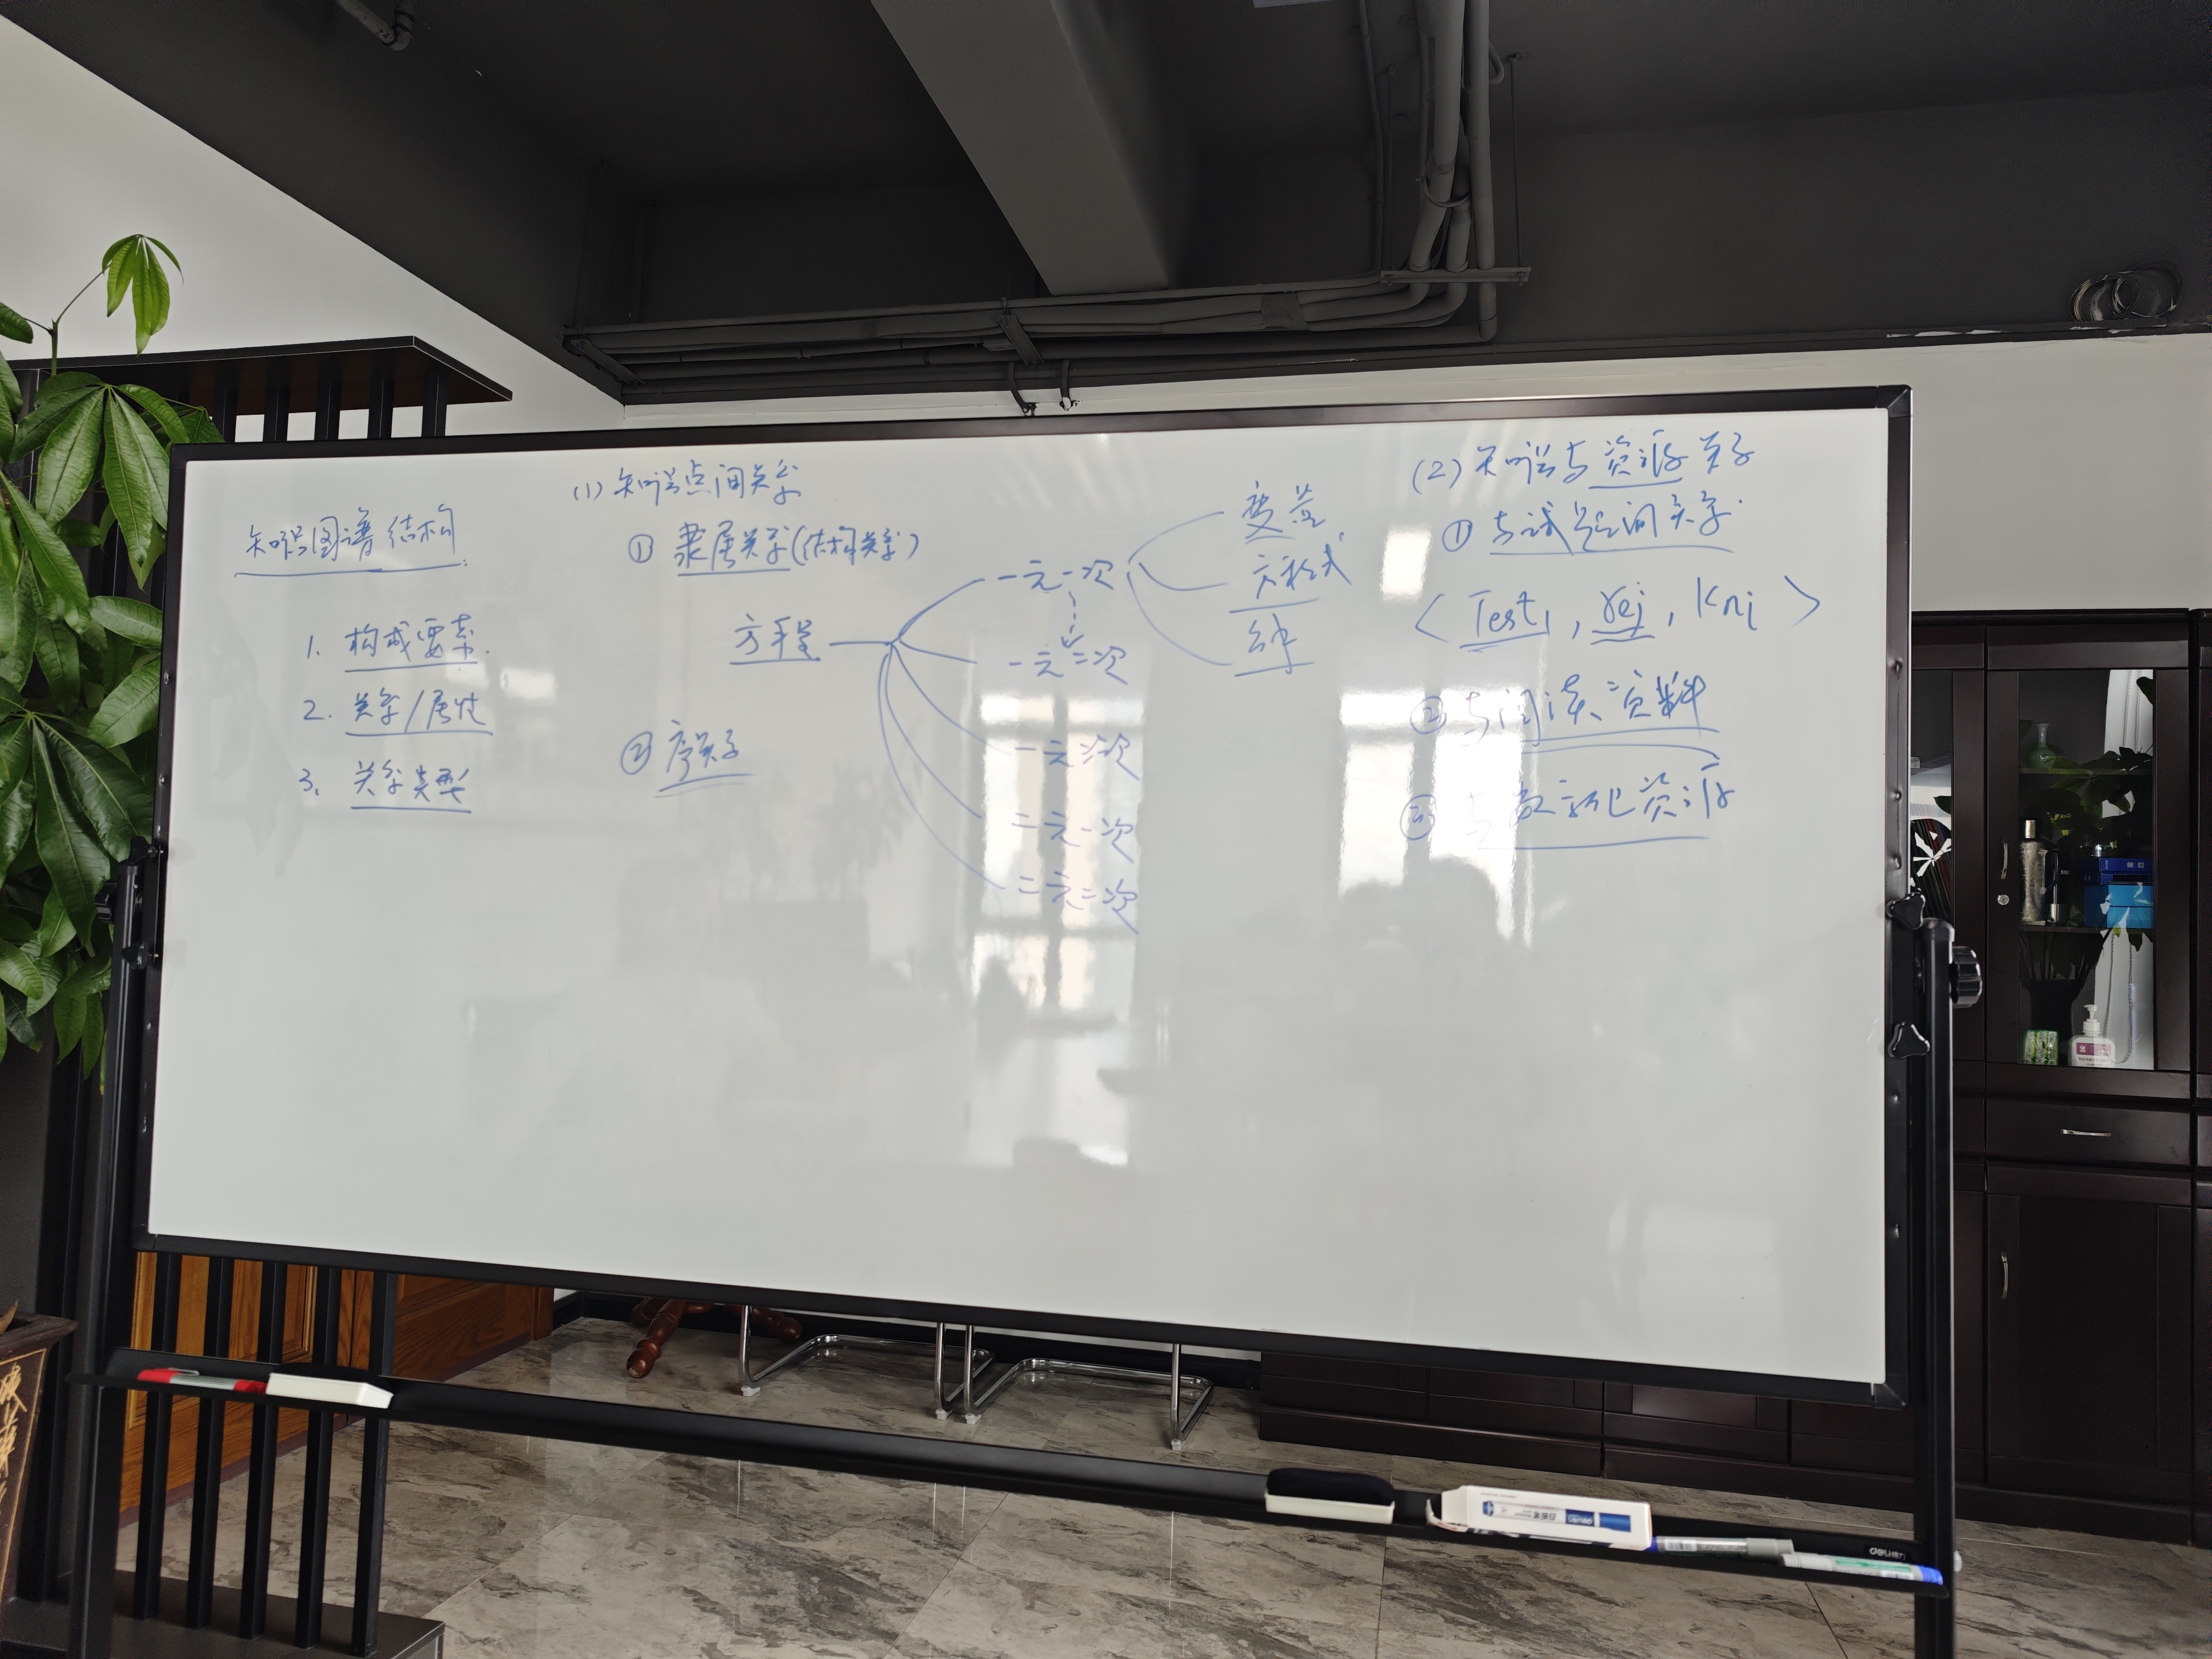 知识图谱结构:
1. 构成要素.
2. 关系/属性
3. 关系类型
(1) 知识点间关系
① 隶属关系(结构关系)
方程
一元一次
一元二次
一元三次
二元一次
二元二次
变量
方程式
② 序关系
(2) 知识与资源关系
① 与试题间关系.
< Test₁, rej, Knj >
② 与阅读资料
③ 与数字化资源
deli得力